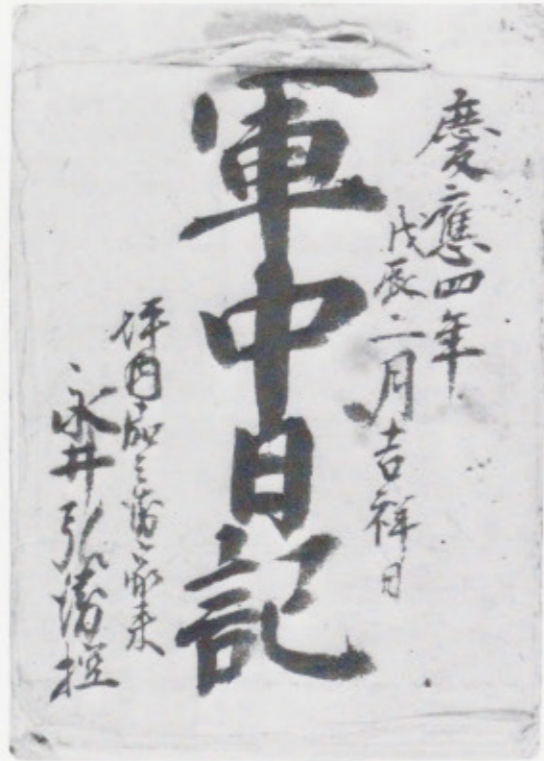 慶應四年
戊辰二月吉祥日
軍中日記
坪内家来
永井弘濤控